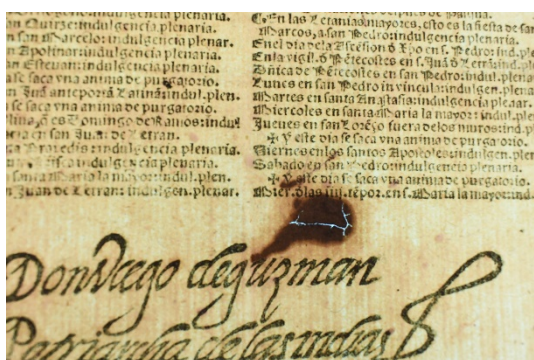 san Quirze: indulgencia plenaria.
n san Marcelo: indulgencia plenar.
n Apolinar: indulgencia plenaria.
n Esteuan: indulgencia plenaria.
a se saca vna anima de purgatorio.
n Juã anteportã Latinã: indul. plen.
se saca vna anima de purgatorio.
es Domingo de Ramos: indul
en san Juan de Letran.
Praredis: indulgencia plenaria.
indulgencia plenaria.
santa Maria la mayor: indul. plen.
n Juan de Letran: indulgen. plenar.
En las Letanias mayores, esto es la fiesta de san
Marcos, a san Pedro: indulgencia plenaria.
Enel dia dela Ascẽsion d Xpo en s. Pedro: ind. ple
Enla vigil. d Pẽtecostes en s. Juã d Letrã: ind. pl
Dñica de Pẽtecostes en san Pedro: indul. plena
Lunes en san Pedro in vincula: indul. plen.
Martes en santa Anastasia: indulgencia plenar.
Miercoles en santa Maria la mayor: indul. pl
Jueues en san Lorẽço fuera delos muros: ind. p
✠ Y este dia se saca vna anima de purgatorio.
Viernes enlos santos Apostoles: indulgen. plen
Sabado en san Pedro: indulgencia plenaria.
✠ Y este dia se saca vna anima de purgatorio.
Mier. dlas iiij. tẽpor. en s. Maria la mayor: ind
Don diego deguzman
Patriarcha delas indias